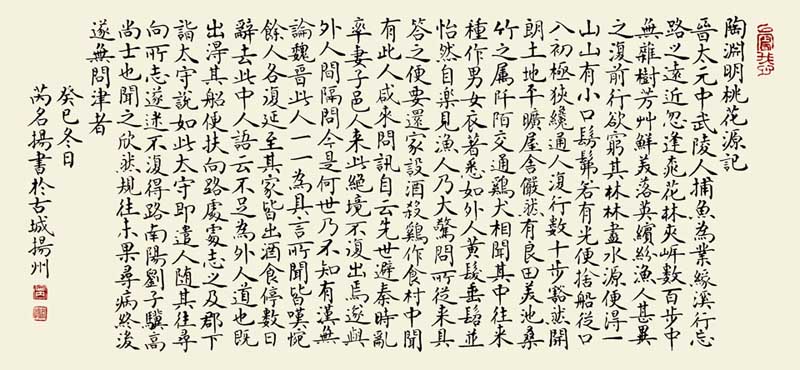 陶淵明桃花源記
晉太元中武陵人捕魚為業緣溪行忘
路之遠近忽逢桃花林夾岸數百步中
無雜樹芳艸鮮美落英繽紛漁人甚異
之復前行欲窮其林林盡水源便得一
山山有小口髣髴若有光便捨船從口
入初極狹纔通人復行數十步豁然開
朗土地平曠屋舍儼然有良田美池桑
竹之屬阡陌交通鷄犬相聞其中往來
種作男女衣著悉如外人黃髮垂髫並
怡然自樂見漁人乃大驚問所從來具
答之便要還家設酒殺鷄作食村中聞
有此人咸來問訊自云先世避秦時亂
率妻子邑人來此絕境不復出焉遂與
外人間隔問今是何世乃不知有漢無
論魏晉此人一一為具言所聞皆嘆惋
餘人各復延至其家皆出酒食停數日
辭去此中人語云不足為外人道也既
出得其船便扶向路處處志之及郡下
詣太守說如此太守即遣人隨其往尋
向所志遂迷不復得路南陽劉子驥高
尚士也聞之欣然規往未果尋病終後
遂無問津者
癸巳冬日
芮名揚書於古城揚州